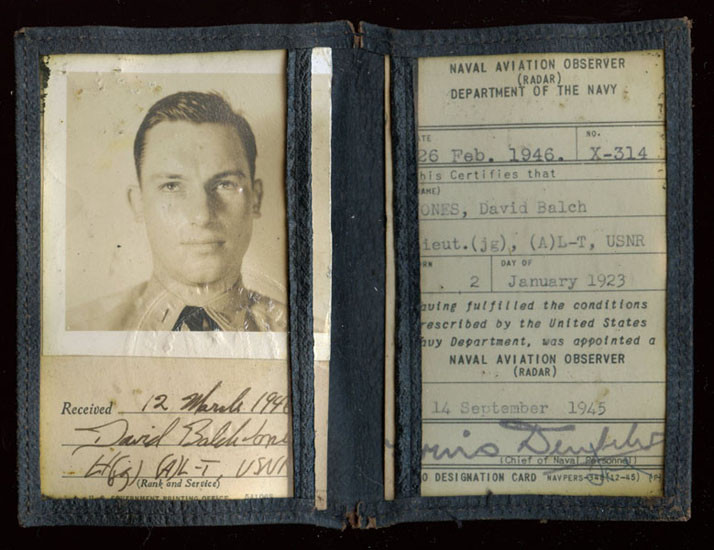 Received 12 March 194
David Balch Jone
Lt(jg) (A)L-T, USN
(Rank and Service)
GOVERNMENT PRINTING OFFICE
NAVAL AVIATION OBSERVER
(RADAR)
DEPARTMENT OF THE NAVY
ATE NO.
26 Feb. 1946. X-314
his Certifies that
AME)
ONES, David Balch
ieut.(jg), (A)L-T, USNR
RN DAY OF
2 January 1923
aving fulfilled the conditions
rescribed by the United States
avy Department, was appointed a
NAVAL AVIATION OBSERVER
(RADAR)
14 September 1945
(Chief of Naval Personnel)
O DESIGNATION CARD